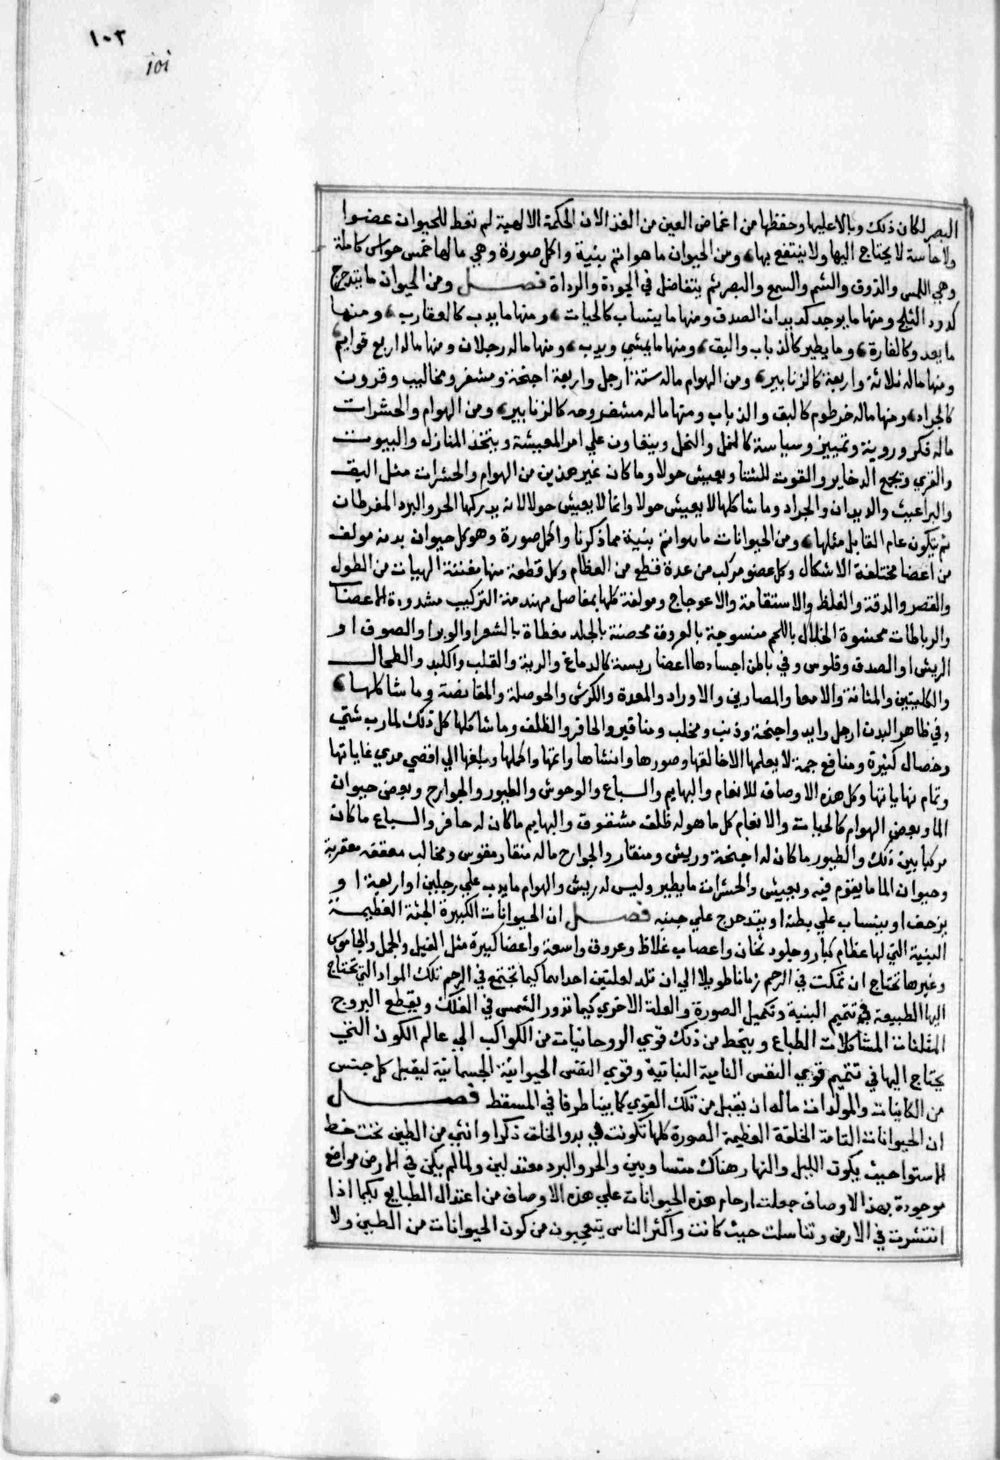 ١٠٢
101
البصر لكان ذلك وبالا عليها وحفظها من اغماض العين من القذا لان الحكمة الالهية لم تعط للحيوان عضوا
ولا حاسة لا يحتاج اليها ولا ينتفع بها ومن الحيوان ما هو اتم بنية واكمل صورة وهي ما لها خمس حواس كاملة
وهي اللمس والذوق والشم والسمع والبصر ثم يتفاضل في الجودة والرداة فصل ومن الحيوان ما يتدحرج
كدود الثلج ومنها ما يوجد كديدان الصدف ومنها ما ينساب كالحيات ومنها ما يدب كالعقارب ومنها
ما يعدو كالفارة وما يطير كالذباب والبق ومنها ما يمشي ويدب ومنها ما له رجلان ومنها ما له اربع قوايم
ومنها ما له ثلاثة واربعة كالزنابير ومن الهوام ما له ستة ارجل واربعة اجنحة ومشفر ومخاليب وقرون
كالجراد ومنها ما له خرطوم كالبق والذباب ومنها ما له مشفر وحمه كالزنابير ومن الهوام والحشرات
ما له فكر وروية وتمييز وسياسة كالنمل والنحل ويتعاون علي امر المعيشة ويتخذ المنازل والبيوت
والقري ويجمع الدخاير والقوت للشتا ويعيش حولا وما كان غير هذين من الهوام والحشرات مثل البق
والبراغيث والديدان والجراد وما شاكلها لا يعيش حولا وانما لا يعيش حولا لانه يدركها الحر والبرد المفرطان
ثم يتكون عام القابل مثلها ومن الحيوانات ما هو اتم بنية مما ذكرنا واكمل صورة وهو كل حيوان بدنه مولف
من اعضا مختلفة الاشكال وكل عضو مركب من عدة قطع من العظام وكل قطعة منها مفننة الهيبات من الطول
والقصر والدقة والغلظ والاستقامة والاعوجاج ومولفة كلها بمفاصل مهندمة التركيب مشدودة الاعصاب
والرباطات محشوة الخلل باللحم منسوجة بالعروق محصنة بالجلد مغطاة بالشعر او الوبر او الصوف او
الريش او الصدف وفلوس وفي باطن اجسادها اعضا ريسة كالدماغ والرية والقلب والكبد والطحال
والكليتين والمثانة والامعا والمصارين والاوراد والمعدة والكرش والحوصلة والقانصة وما شاكلها
وفي ظاهر البدن ارجل وايد واجنحة وذنب ومخلب ومناقير والحافر والظلف وما شاكلها كل ذلك لمارب شتي
وخصال كثيرة ومنافع جمة لا يعلمها الا خالقها وصورها وانشاها واتمها واكملها وبلغها الي اقصي مدي غاياتها
وتمام نهاياتها وكل هذه الاوصاف للانعام والبهايم والسباع والوحوش والطيور والجوارح وبعض حيوان
الما وبعض الهوام كالحيات والانعام كل ما هو له ظلف مشقوق والبهايم ما كان له حافر والسباع ما كان
مركبا بين ذلك والطيور ما كان له اجنحة وريش ومنقار والجوارح ما له منقار مقوس ومخالب معقفة معقربة
وحيوان الما ما يقوم فيه ويعيش والحشرات ما يطير وليس له ريش والهوام ما يدب علي رجلين او اربعة او
يزحف او ينساب علي بطنه او يتدحرج علي جنبه فصل ان الحيوانات الكبيرة الجثة العظيمة
البنية التي لها عظام كبار وجلود ثخان واعصاب غلاظ وعروق واسعة واعضا كبيرة مثل الفيل والجمل والجاموس
وغيرها تحتاج ان تمكث في الرحم زمانا طويلا الي ان تلد لعلتين احداهما كيما تجتمع في الرحم تلك المواد التي تحتاج
اليها الطبيعة في تتميم البنية وتكميل الصورة والعلة الاخري كيما تدور الشمس في الفلك ويقطع البروج
المثلثات المشاكلات الطباع وينحط من ذلك قوي الروحانيات من الكواكب الي عالم الكون التي
يحتاج اليها في تتميم قوي النفس النامية النباتية وقوي النفس الحيوانية الجسمانية ليقبل كل جنس
من الكاينات والمولدات ما له ان يقبل من تلك القوي كما بينا طرفا في المسقط فصل
ان الحيوانات التامة الخلقة العظيمة الصورة كلها تكونت في بدو الخلق ذكرا وانثي من الطين تحت خط
الاستوا حيث يكون الليل والنهار هناك متساويين والحر والبرد معتدلين ولما لم يكن في الارض مواضع
موجودة بهذا الاوصاف جعلت ارحام هذه الحيوانات علي هذه الاوصاف من اعتدال الطبايع لكيما اذا
انتشرت في الارض وتناسلت حيث كانت واكثر الناس يتعجبون من كون الحيوانات من الطين ولا